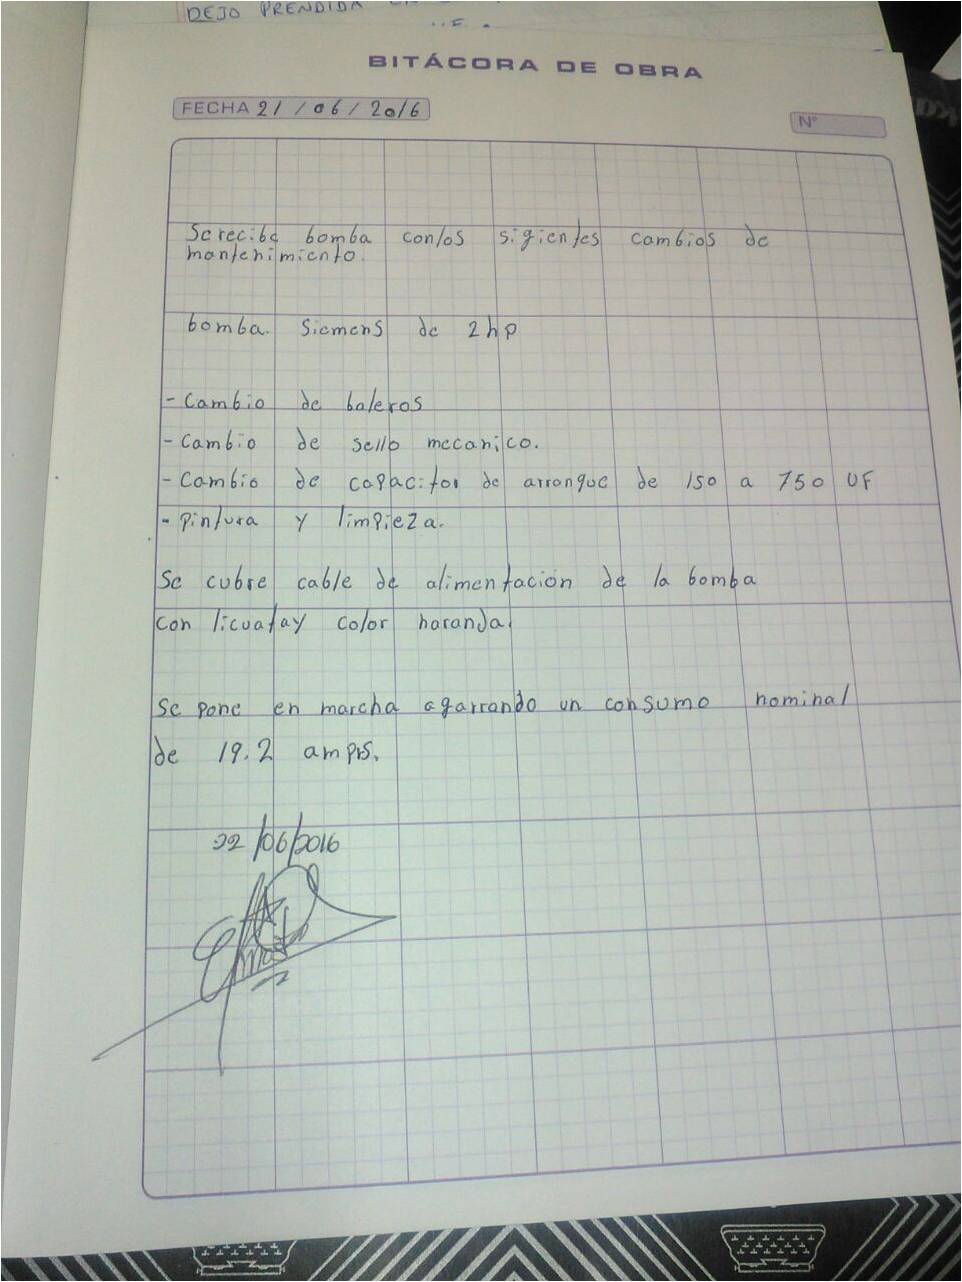 DEJO PRENDIDA
BITÁCORA DE OBRA
FECHA 21/06/2016
N°
Se recibe bomba con los sigientes cambios de
mantenimiento.
bomba. Siemens de 2 hp
- Cambio de baleros
- Cambio de sello mecanico.
- Cambio de capacitor de arranque de 150 a 750 UF
- Pintura y limpieza.
Se cubre cable de alimentación de la bomba
con licuatay color naranda.
Se pone en marcha agarrando un consumo nominal
de 19.2 amprs.
22/06/2016